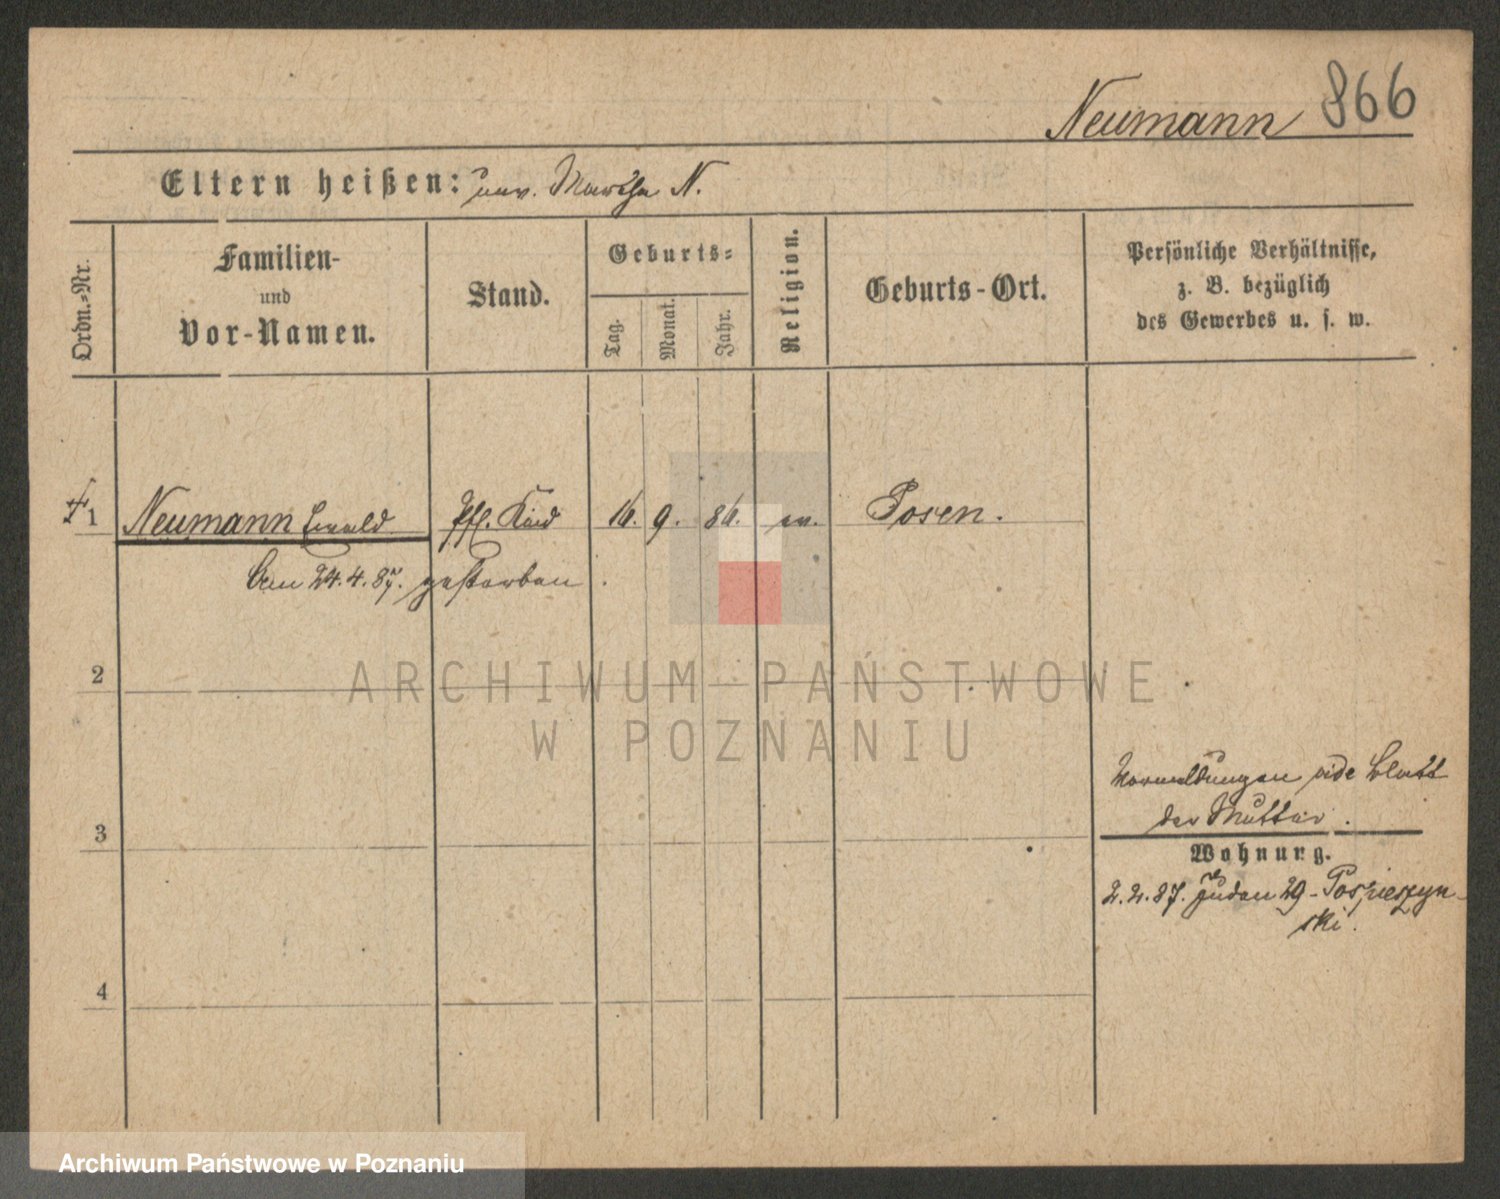 Neumann 866
Eltern heißen: unv. Martha N.
Ordn.-Nr.
Familien-
und
Vor-Namen.
Stand.
Geburts-
Tag.
Monat.
Jahr.
Religion.
Geburts-Ort.
Persönliche Verhältnisse,
z. B. bezüglich
des Gewerbes u. s. w.
1 Neumann Ewald Pfl. Kind 16. 9. 86. ev. Posen.
Am 24. 4. 87. gestorben.
2
ARCHIWUM PAŃSTWOWE
W POZNANIU
Vormeldungen vide Blatt
der Mutter.
3
Wohnung.
2. 2. 87. Juden 29 - Pospieszyn-
ski.
4
Archiwum Państwowe w Poznaniu